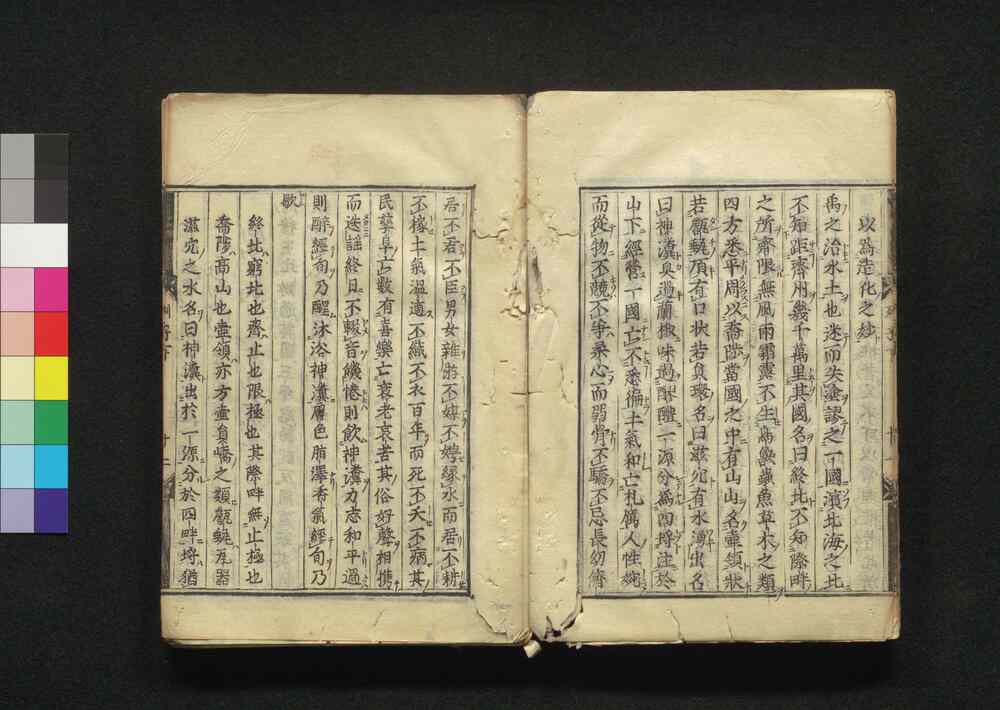 以為造化之妙
禹之治水土也迷而失塗謬之一國濱北海之北
不知距齊州幾千萬里其國名曰終北不知際畔
之所齊限無風雨霜露不生鳥獸蟲魚草木之類
四方悉平周以喬陟當國之中有山山名壺領狀
若甔甀頂有口狀若員環名曰滋穴有水湧出名
曰神瀵臭過蘭椒味過醪醴一源分為四埒注於
山下經營一國亡不悉徧土氣和亡札厲人性婉
而從物不競不爭柔心而弱骨不驕不忌長幼儕
居不君不臣男女雜游不媒不娉緣水而居不耕
不稼土氣溫適不織不衣百年而死不夭不病其
民孳阜亡數有喜樂亡衰老哀苦其俗好聲相攜
而迭謠終日不輟音饑惓則飲神瀵力志和平過
則醉經旬乃醒沐浴神瀵膚色脂澤香氣經旬乃
歇
終北窮北也齊止也限極也其際畔無止極也
喬陟高山也壺領亦方壺員嶠之類甔甀瓦器
滋穴之水名曰神瀵出於一源分於四畔埒猶
列